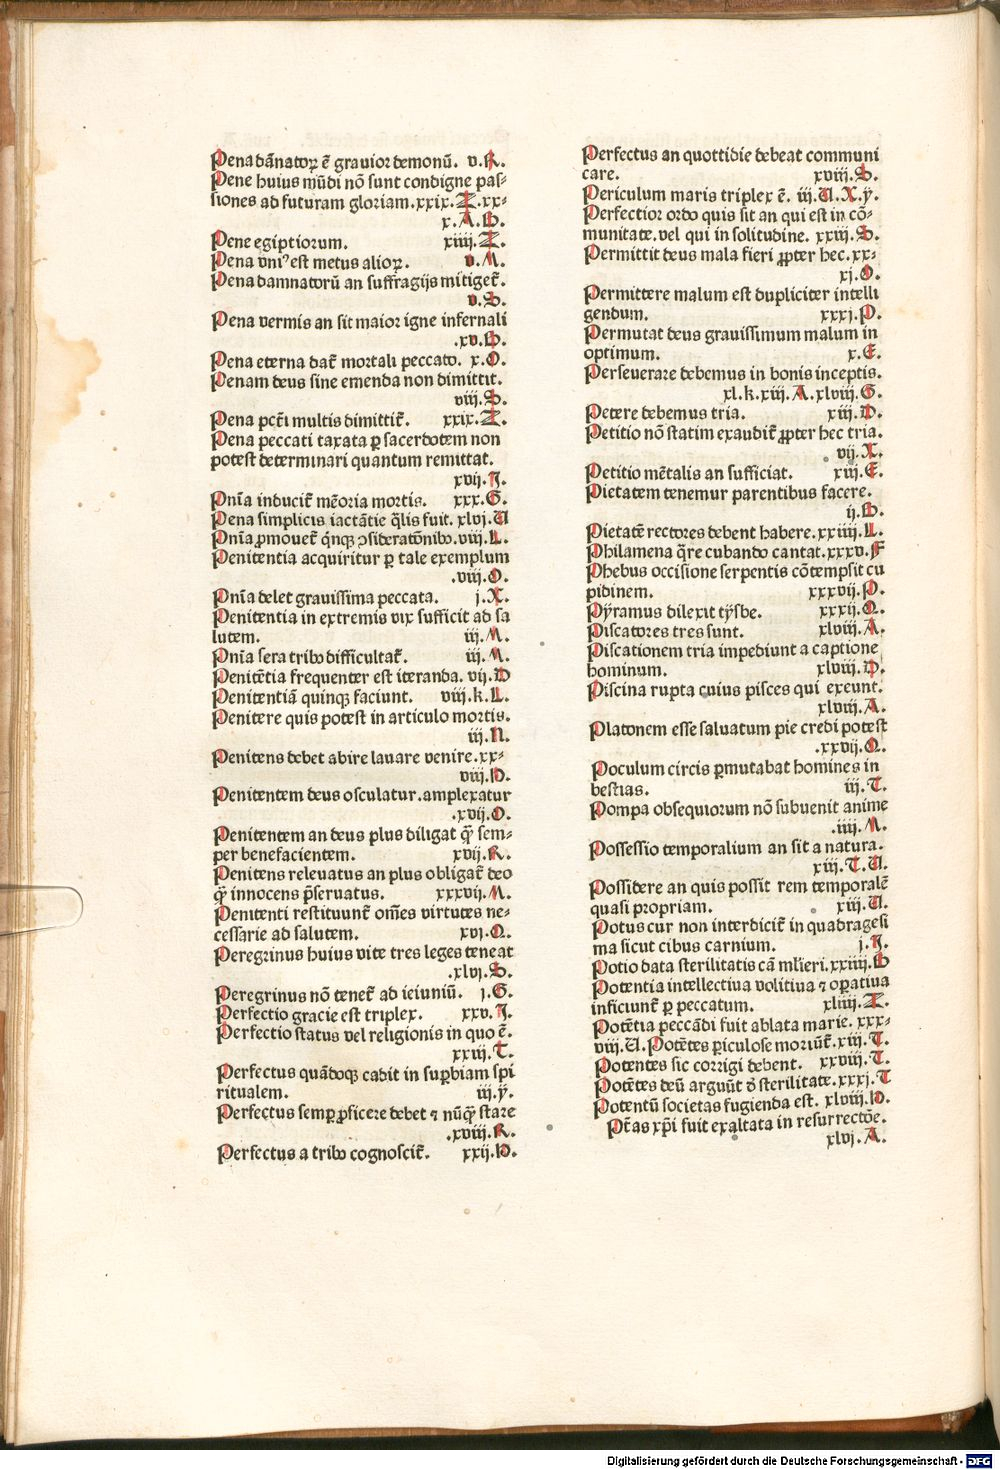 Pena dãnatoꝝ ẽ grauior demonũ. v.R.
Pene huius mũdi nõ sunt condigne pas-
siones ad futuram gloriam.xxix.Z.xx-
x.A.B.
Pene egiptiorum. xiiii.Z.
Pena vniꝰ est metus alioꝝ. v.M.
Pena damnatorũ an suffragijs mitiget̃.
v.S.
Pena vermis an sit maior igne infernali
.xv.B.
Pena eterna dat̃ mortali peccato. x.O.
Penam deus sine emenda non dimittit.
viii.S.
Pena pct̃i multis dimittit̃. xxix.Z.
Pena peccati taxata ꝑ sacerdotem non
potest determinari quantum remittat.
xvij.J.
Pnĩa inducit̃ mẽoria mortis. xxx.G.
Pena simplicis iactãtie q̃lis fuit. xlvj.U
Pnĩa ꝓmouet̃ q̃nqꝫ ↄsideratõnibꝰ.viii.L.
Penitentia acquiritur ꝑ tale exemplum
.viii.O.
Pnĩa delet grauissima peccata. j.X.
Penitentia in extremis vix sufficit ad sa
lutem. iij.M.
Pnĩa sera tribꝰ difficultat̃. iij.M.
Penitẽtia frequenter est iteranda. vij.D
Penitentiã quinqꝫ faciunt. viii.k.L.
Penitere quis potest in articulo mortis.
iij.N.
Penitens debet abire lauare venire.xx-
viii.D.
Penitentem deus osculatur.amplexatur
.xvij.O.
Penitentem an deus plus diligat q̃ꝫ sem-
per benefacientem. xvij.R.
Penitens releuatus an plus obligat̃ deo
q̃ꝫ innocens p̃seruatus. xxxvij.M.
Penitenti restituunt̃ om̃es virtutes ne-
cessarie ad salutem. xvj.Q.
Peregrinus huius vite tres leges teneat
.xlvj.S.
Peregrinus nõ tenet̃ ad ieiuniũ. j.G.
Perfectio gracie est triplex. xxv.J.
Perfectio status vel religionis in quo ẽ.
xxiij.T.
Perfectus quãdoqꝫ cadit in suꝑbiam spi
ritualem. iij.ÿ.
Perfectus semꝑ ꝓficere debet ⁊ nũq̃ꝫ stare
.xviii.R.
Perfectus a tribꝰ cognoscit̃. xxij.D.
Perfectus an quottidie debeat communi
care. xviii.S.
Periculum maris triplex ẽ. iij.U.X.ÿ.
Perfectior ordo quis sit an qui est in cõ-
munitate.vel qui in solitudine. xxiij.S.
Permittit deus mala fieri ꝓpter hec.xx-
xj.O.
Permittere malum est dupliciter intelli
gendum. xxxj.P.
Permutat deus grauissimum malum in
optimum. x.E.
Perseuerare debemus in bonis inceptis.
xl.k.xiii.A.xlviii.G.
Petere debemus tria. xiij.D.
Petitio nõ statim exaudit̃ ꝓpter hec tria.
vij.X.
Petitio mẽtalis an sufficiat. xiij.E.
Pietatem tenemur parentibus facere.
ij.B.
Pietatẽ rectores debent habere.xxiiii.L.
Philamena q̃re cubando cantat.xxxv.F
Phebus occisione serpentis cõtempsit cu
pidinem. xxxvij.P.
Pÿramus dilexit tÿsbe. xxxij.Q.
Piscatores tres sunt. xlviii.A.
Piscationem tria impediunt a captione
hominum. xlviii.D.
Piscina rupta cuius pisces qui exeunt.
xlviii.A.
Platonem esse saluatum pie credi potest
.xxvij.Q.
Poculum circis ꝑmutabat homines in
bestias. iij.T.
Pompa obsequiorum nõ subuenit anime
.iiii.M.
Possessio temporalium an sit a natura.
xiij.T.U.
Possidere an quis possit rem temporalẽ
quasi propriam. xiij.U.
Potus cur non interdicit̃ in quadragesi
ma sicut cibus carnium. j.J.
Potio data sterilitatis cã mlieri.xxiiii.B
Potentia intellectiua volitiua ⁊ oꝑatiua
inficiunt̃ ꝑ peccatum. xliiii.Z.
Potẽtia peccãdi fuit ablata marie. xxx-
viii.U. Potẽtes ꝑiculose moriũt̃.xiij.T.
Potentes sic corrigi debent. xxviii.T.
Potẽtes deũ arguũt ð sterilitate.xxxj.T
Potentũ societas fugienda est. xlviii.D.
Pt̃as xp̃i fuit exaltata in resurrectõe.
xlvj.A.
Digitalisierung gefördert durch die Deutsche Forschungsgemeinschaft - DFG